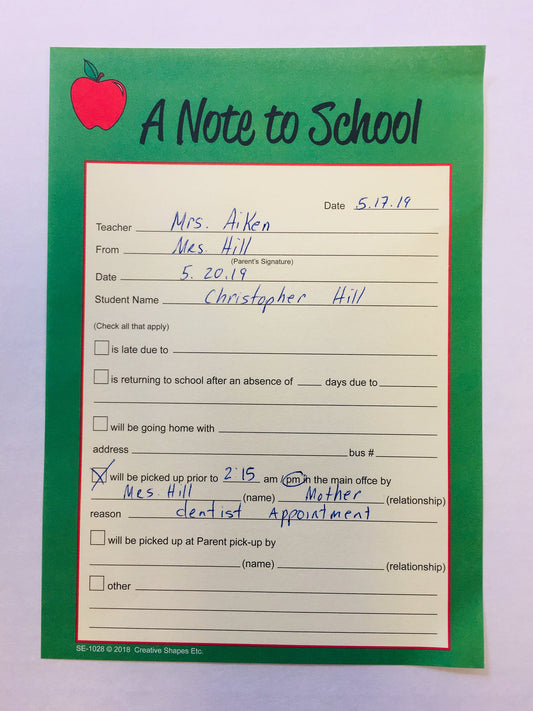 A Note to School
Date 5.17.19
Teacher Mrs. Aiken
From Mrs. Hill
(Parent's Signature)
Date 5.20.19
Student Name Christopher Hill
(Check all that apply)
is late due to
is returning to school after an absence of ____ days due to
will be going home with
address bus #
will be picked up prior to 2:15 am / pm in the main offce by
Mrs. Hill (name) Mother (relationship)
reason dentist Appointment
will be picked up at Parent pick-up by
(name) (relationship)
other
SE-1028 © 2018 Creative Shapes Etc.